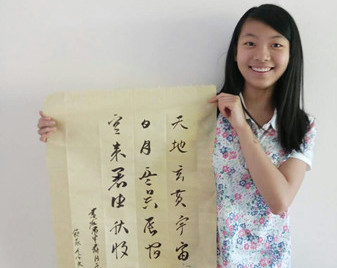 天地玄黄宇宙
日月盈昃辰宿
寒来暑往秋收